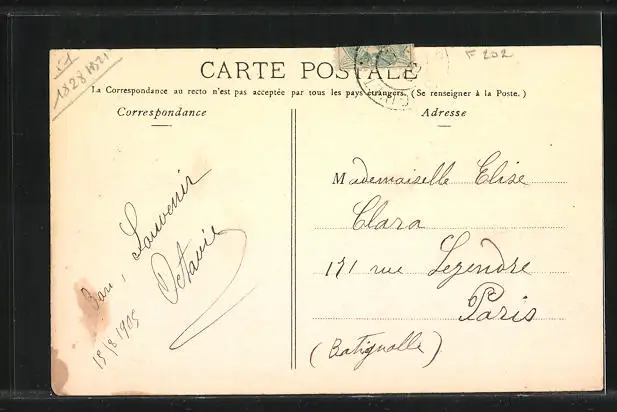 F 202
18281521
CARTE POSTALE
La Correspondance au recto n'est pas acceptée par tous les pays étrangers. (Se renseigner à la Poste.)
Correspondance
Bon, Souvenir
Octavie
15/8 1905
Adresse
Mademoiselle Elise
Clara
171 rue Legendre
Paris
(Batignolle)